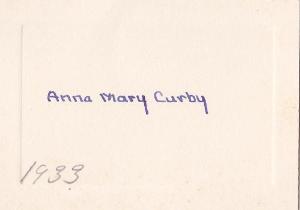 Anna Mary Curby
1933